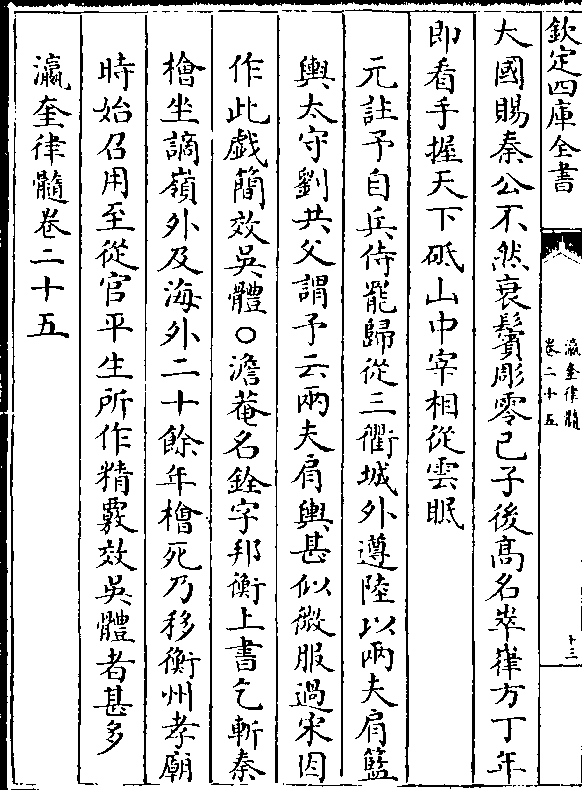 欽定四庫全書
瀛奎律髓
卷二十五
十三
大國賜秦公不然衰鬢彫零已子後髙名崒嵂方丁年
即看手握天下砥山中宰相從雲眠
元註予自兵侍罷歸從三衢城外遵陸以兩夫肩籃
輿太守劉共父謂予云兩夫肩輿甚似微服過宋因
作此戲簡效吳體○澹菴名銓字邦衡上書乞斬秦
檜坐謫嶺外及海外二十餘年檜死乃移衡州孝廟
時始召用至從官平生所作精覈效吳體者甚多
瀛奎律髓卷二十五